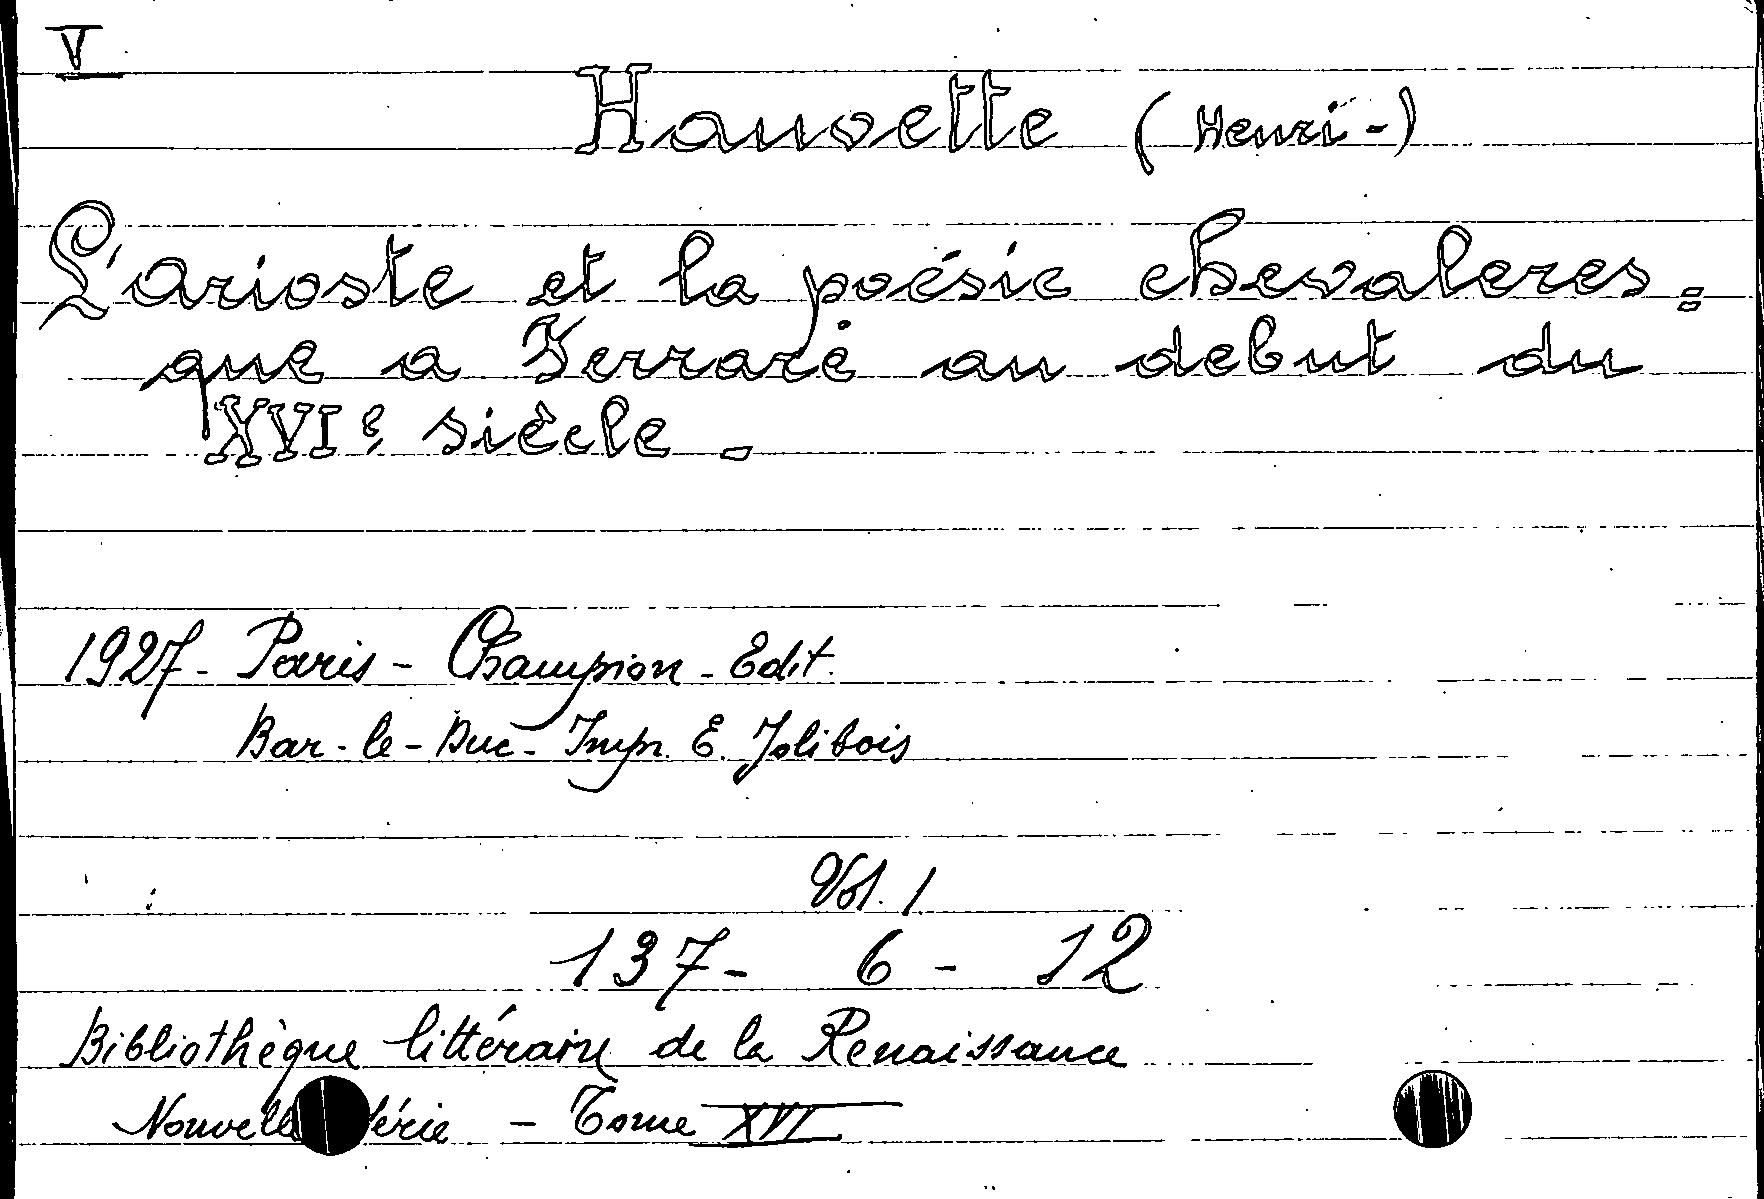 V
Hauvette (Henri-)
L'Arioste et la poésie chevaleres=
que a Ferrare au debut du
XVIe siècle.
1927- Paris - Champion - Edit.
Bar-le-Duc- Impr. E. Jolibois
Vol. 1
137- 6 - 12
Bibliothèque littéraire de la Renaissance
Nouvelle Série - Tome XVI